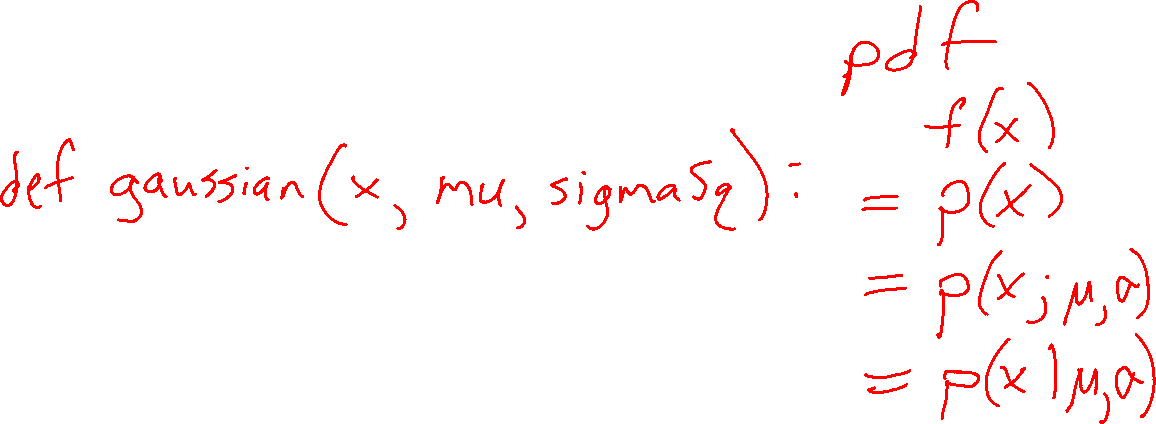 def gaussian(x, mu, sigmaSq):
pdf
f(x)
= p(x)
= p(x; μ, σ)
= p(x | μ, σ)